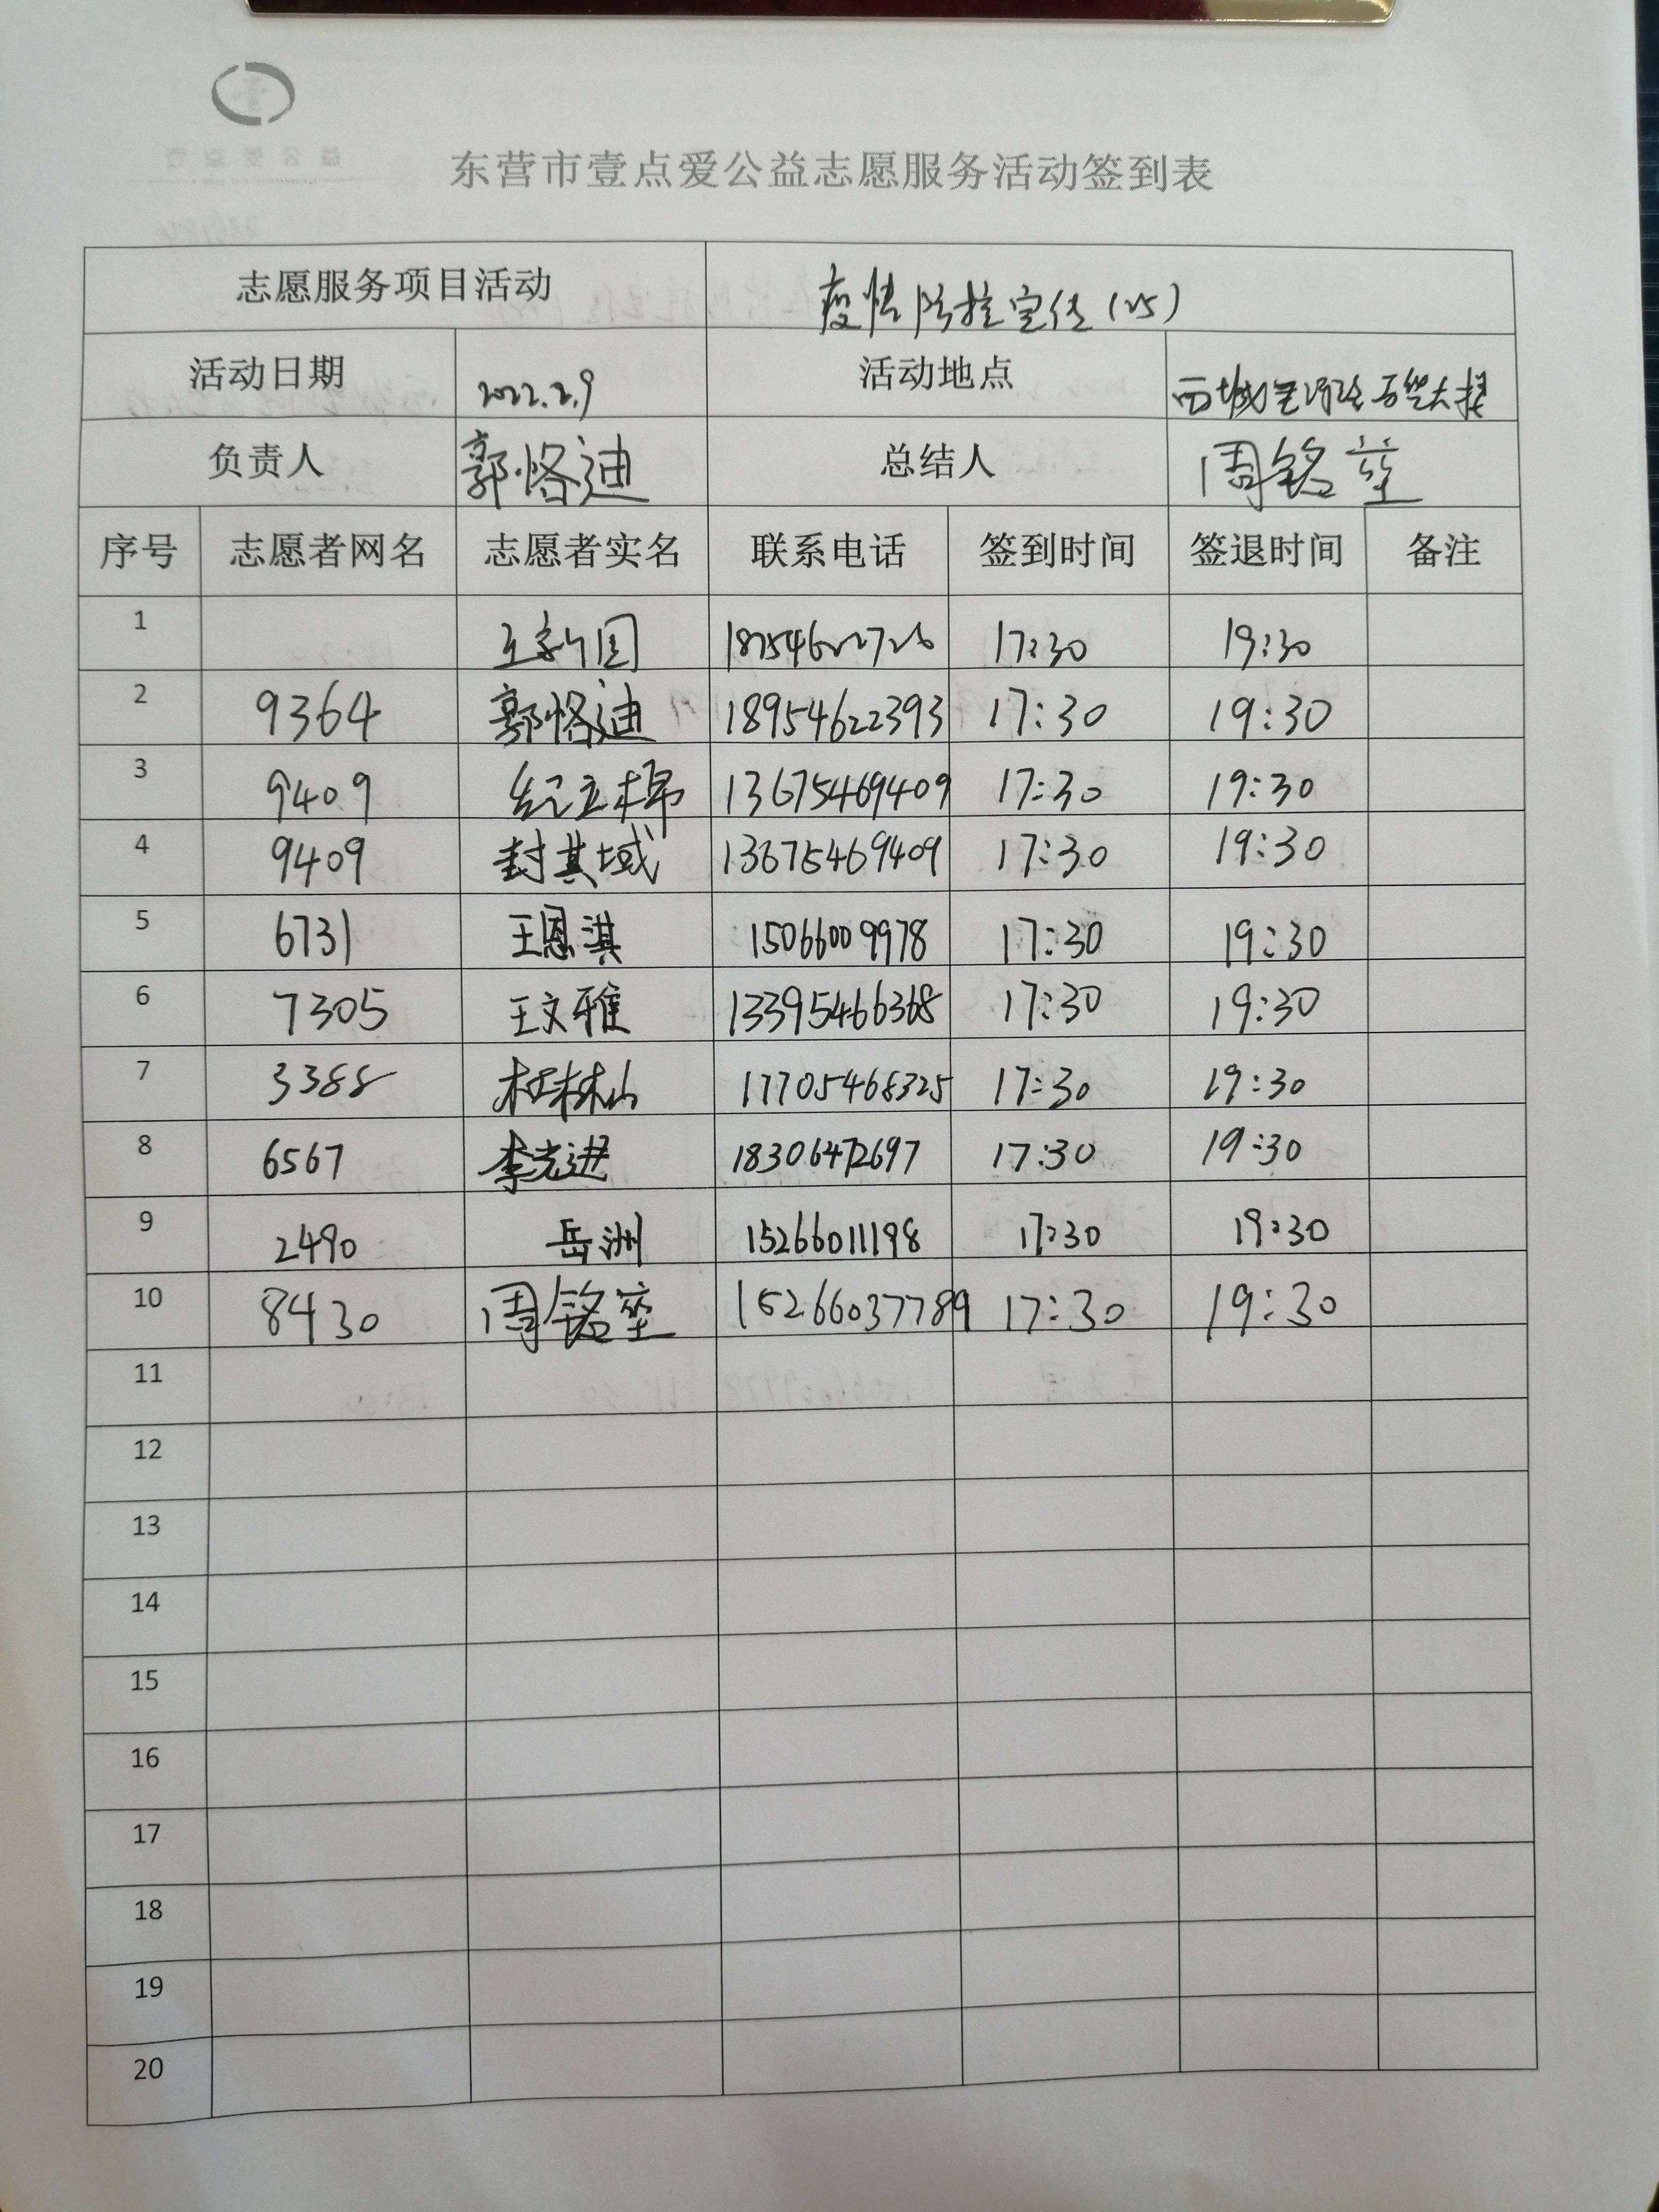 东营市壹点爱公益志愿服务活动签到表
志愿服务项目活动 疫情防控宣传(25)
活动日期 2022.2.9 活动地点 西城
负责人 郭恪迪 总结人 周铭莹
序号 志愿者网名 志愿者实名 联系电话 签到时间 签退时间 备注
1 王新国 18754622726 17:30 19:30
2 9364 郭恪迪 18954622393 17:30 19:30
3 9409 纪立棉 13675469409 17:30 19:30
4 9409 封其域 13675469409 17:30 19:30
5 6731 王恩淇 15066009978 17:30 19:30
6 7305 王文雅 13395466368 17:30 19:30
7 3388 17705468325 17:30 19:30
8 6567 李光进 18306472697 17:30 19:30
9 2490 岳洲 15266011198 17:30 19:30
10 8430 周铭莹 15266037789 17:30 19:30
11
12
13
14
15
16
17
18
19
20